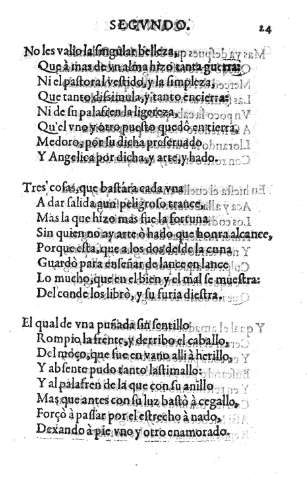 SEGVNDO. 24
No les valio la singular belleza,
Que à mas de vn alma hizo tanta guerra:
Ni el pastoral vestido, y la simpleza,
Que tanto dissimula, y tanto encierra:
Ni de sin palafren la ligereza,
Qu'el vno y otro puesto quedò en tierra,
Medoro, por su dicha preseruado,
Y Angelica por dicha, y arte, y hado.
Tres cosas, que bastàra cada vna
A dar salida aun peligroso trance,
Mas la que hizo mas fue la fortuna
Sin quien no ay arte ò hado que honra alcance,
Porque esta, que a los dos desde la cuna
Guardò para enseñar de lance en lance
Lo mucho que en el bien y el mal se muestra:
Del conde los librò, y su furia diestra.
El qual de vna puñada sin sentillo
Rompio la frente, y derribo el cauallo,
Del moço, que fue en vano alli à herillo,
Y absente pudo tanto lastimallo:
Y al palafren de la que con su anillo
Mas que antes con su luz bastò à cegallo,
Forçò à passar por el estrecho à nado,
Dexando à pie vno y otro enamorado.